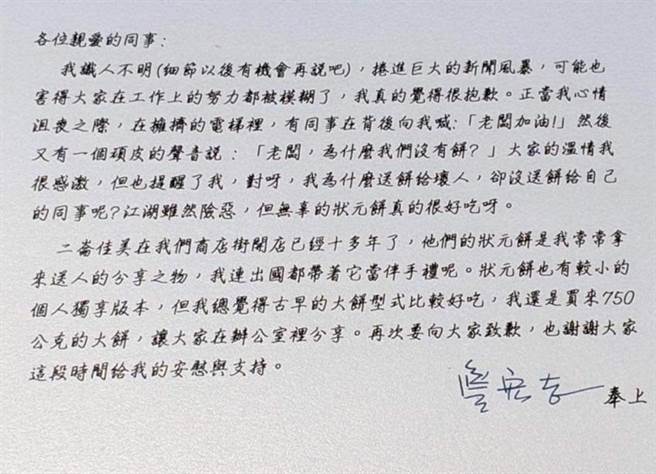 各位親愛的同事:
我識人不明(細節以後有機會再說吧)，捲進巨大的新聞風暴，可能也
害得大家在工作上的努力都被模糊了，我真的覺得很抱歉。正當我心情
沮喪之際，在擁擠的電梯裡，有同事在背後向我喊:「老闆加油!」然後
又有一個頑皮的聲音說:「老闆，為什麼我們沒有餅?」大家的溫情我
很感激，但也提醒了我，對呀，我為什麼送餅給壞人，卻沒送餅給自己
的同事呢?江湖雖然險惡，但無辜的狀元餅真的很好吃呀。
二崙佳美在我們商店街開店已經十多年了，他們的狀元餅是我常常拿
來送人的分享之物，我連出國都帶著它當伴手禮呢。狀元餅也有較小的
個人獨享版本，但我總覺得古早的大餅型式比較好吃，我還是買來750
公克的大餅，讓大家在辦公室裡分享。再次要向大家致歉，也謝謝大家
這段時間給我的安慰與支持。
詹宏志 奉上